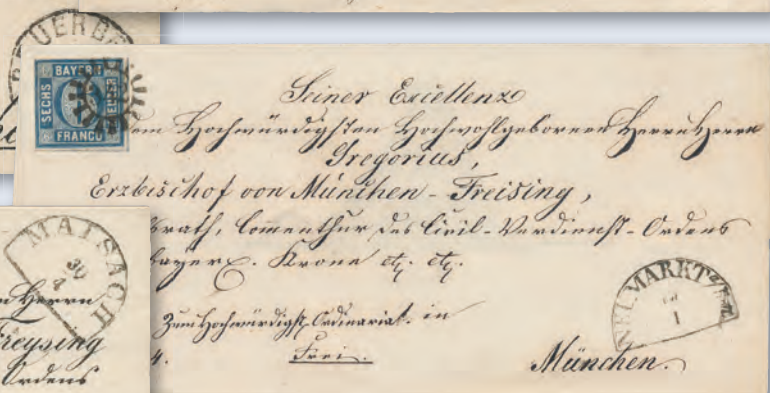 EUERB
BAYERN
SECHS
KREUZER
FRANCO
Seiner Excellenz
dem Hochwürdigsten Hochwohlgebornen Herrn Herrn
Gregorius,
Erzbischof von München - Freising,
srath, Commenthur des Civil-Verdienst-Ordens
bayer. Krone etc. etc.
Zum hochwürdigst. Ordinariat. in
4. Frei. München.
NEUMARKT
1
MAISACH
30
4
n Herrn
Freysing
Ordens